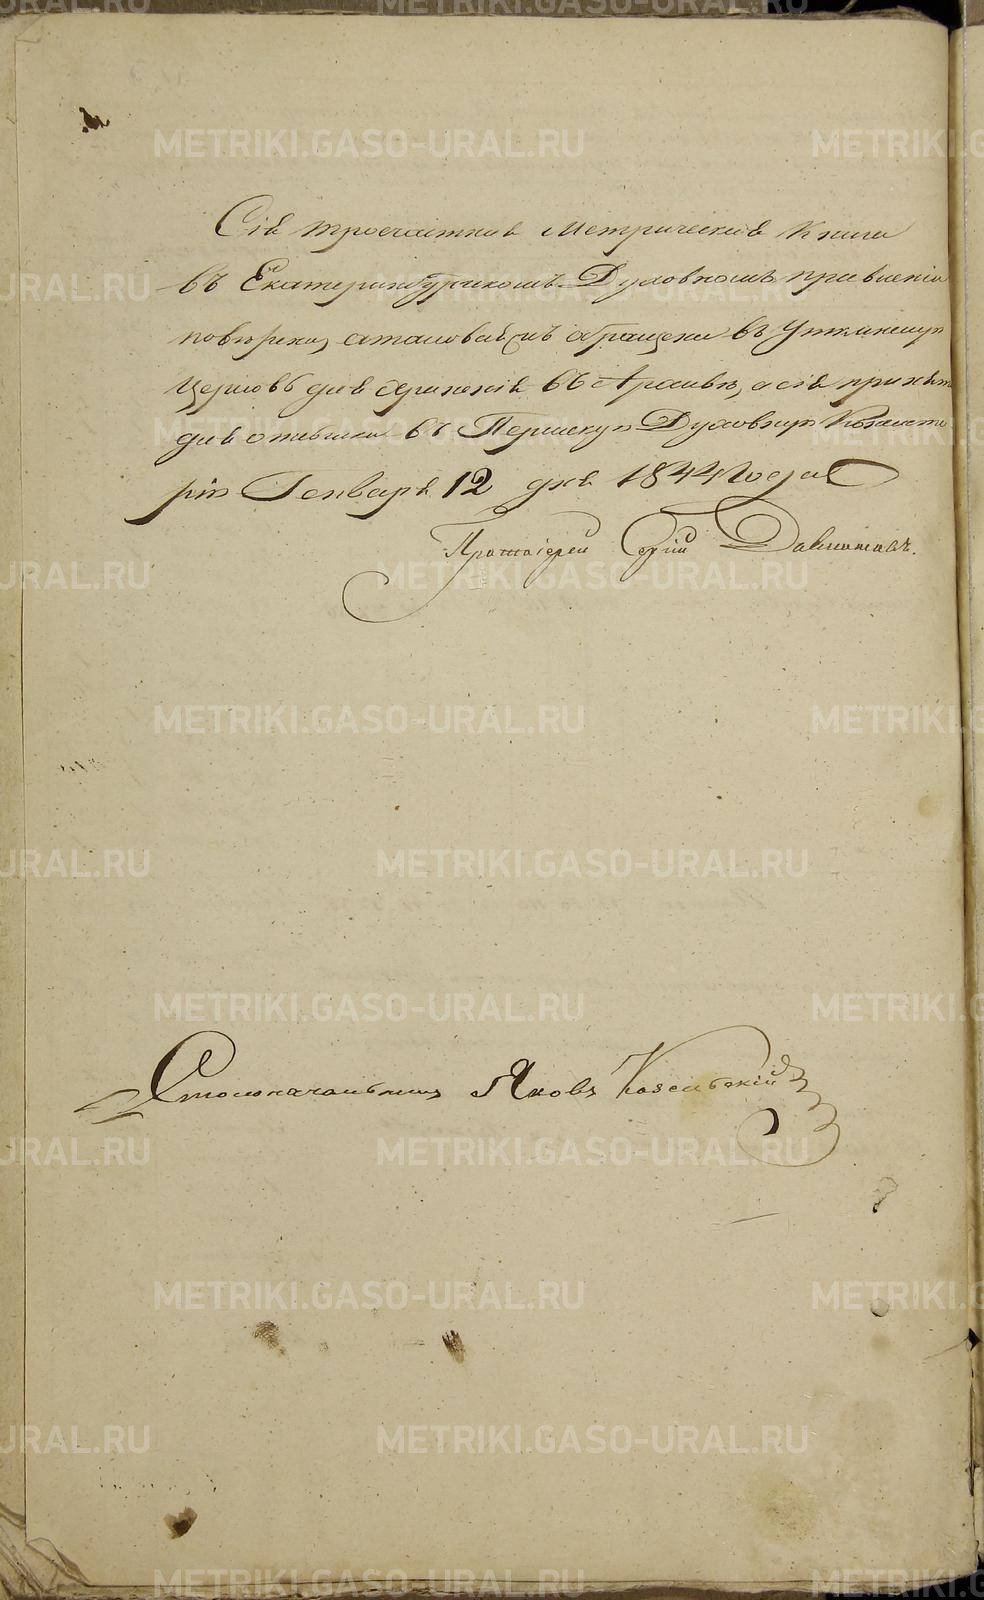 Сія троечастная Метрическая Книга
въ Екатеринбургскомъ Духовномъ правленіи
повѣрена, а таковая обращена въ Уткинскую
Церковь для храненія въ Архивѣ, а сія принята
для отсылки въ Пермскую Духовную Консисто
рію Генваря 12 дня 1844 года
Протоіерей Сергій
Столоначальникъ Яковъ Козельскій
METRIKI.GASO-URAL.RU